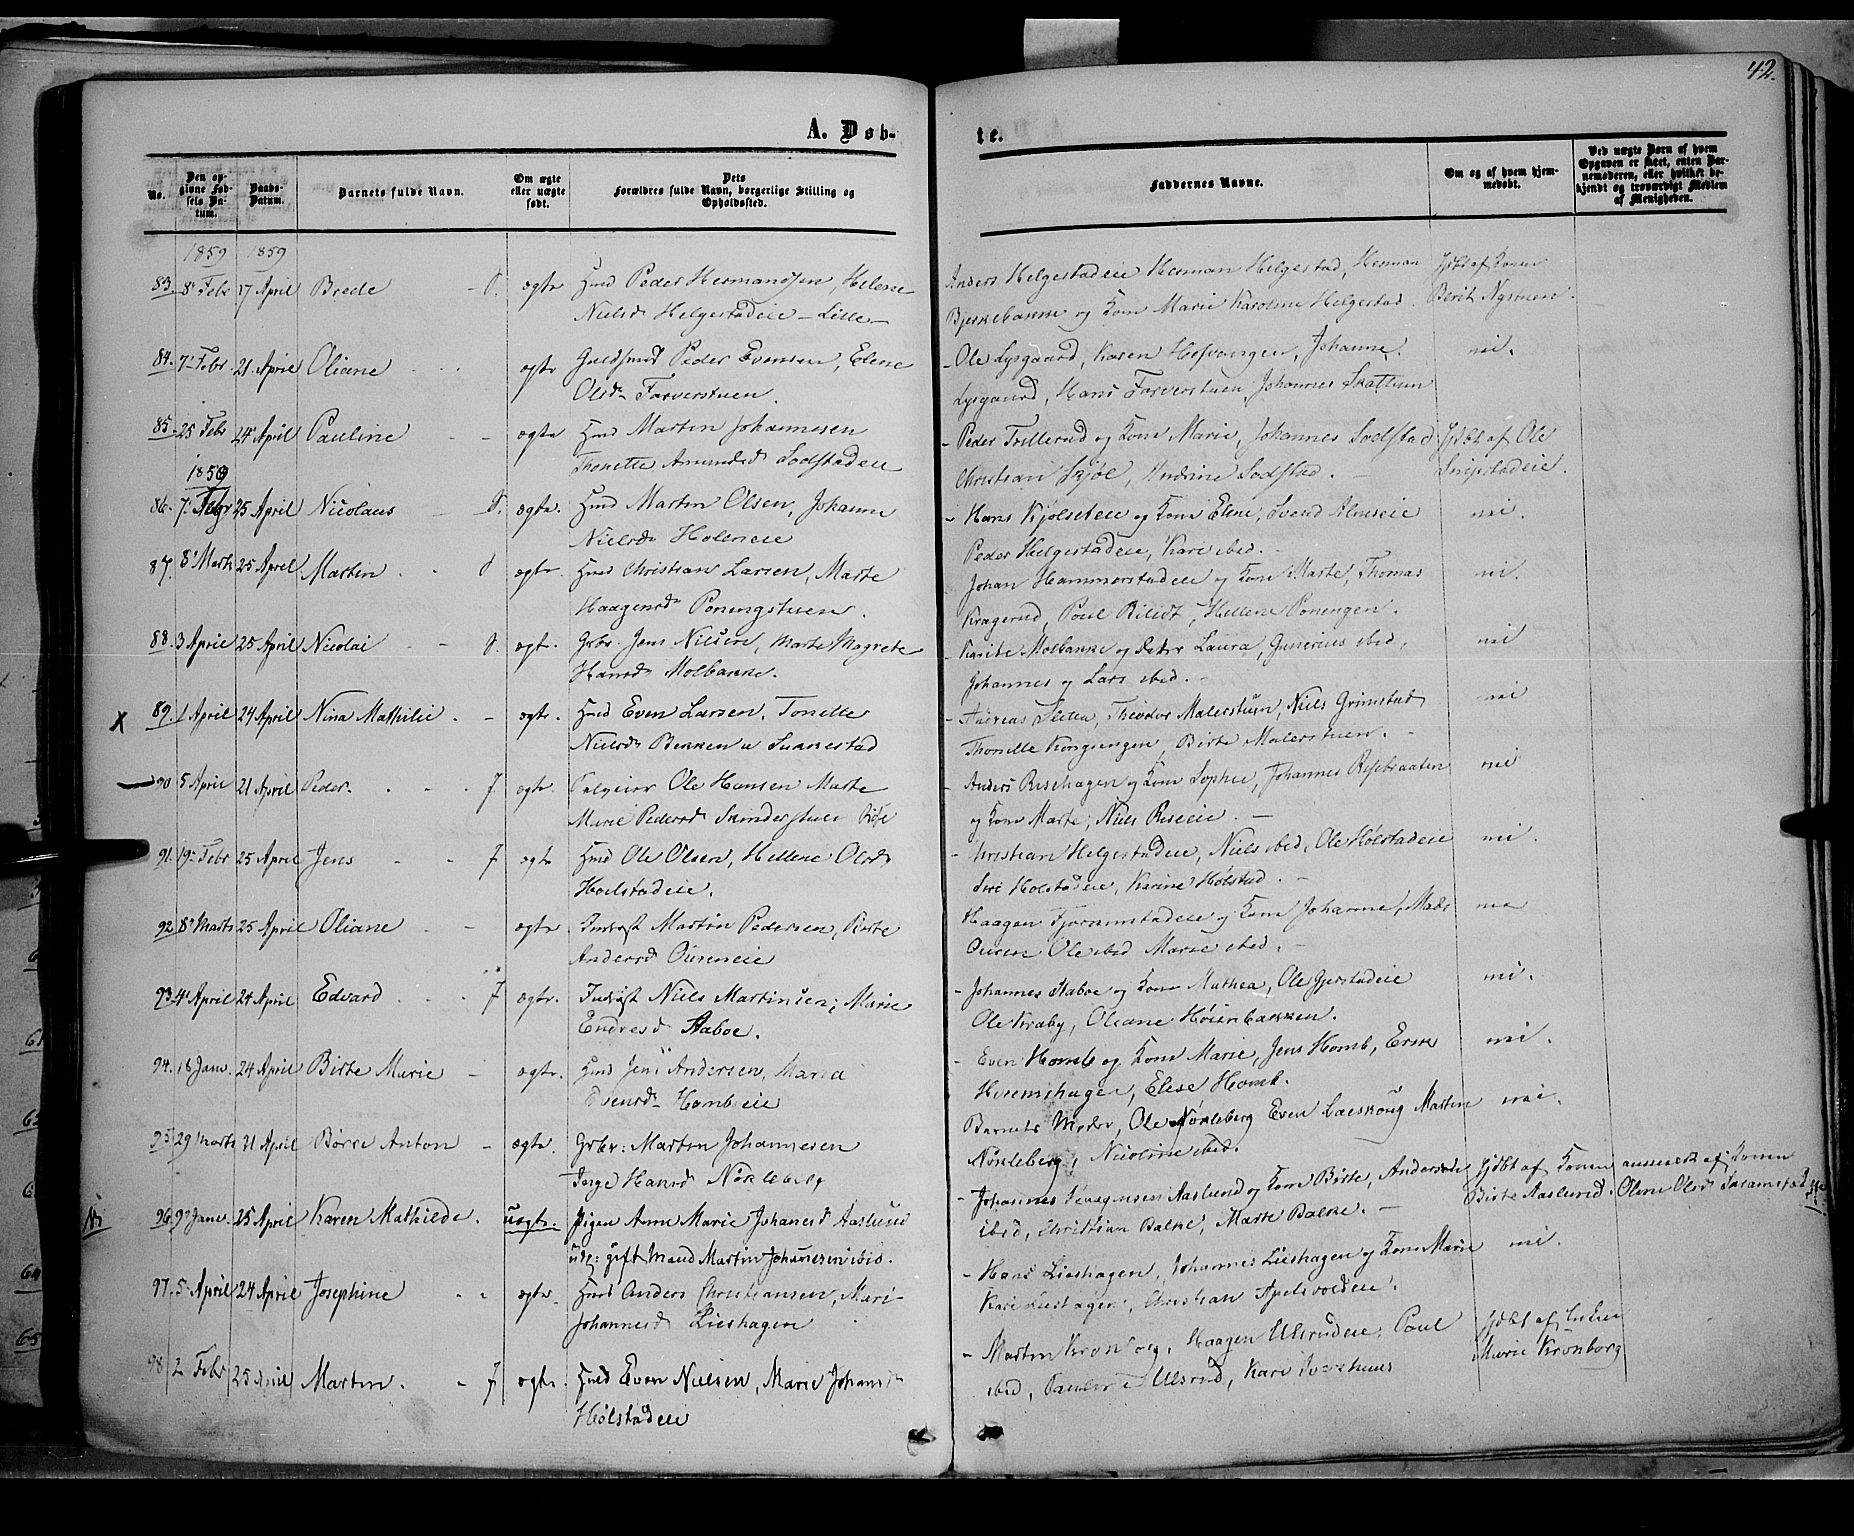 42.
A. Døb-
te.
No.
Den op-
givne Fød-
sels Da-
tum.
Daabs-
Datum.
Barnets fulde Navn.
Om ægte
eller uægte
født.
Dets
Forældres fulde Navn, borgerlige Stilling og
Opholdssted.
Faddernes Navne.
Om og af hvem hjem-
medøbt.
Ved uægte Børn af hvem
Opgaven er skeet, enten Bar-
nemoderen, eller hvilket be-
kjendt og troværdigt Medlem
af Menigheden.
1859 1859
83. 8 Febr 17 April Brede ægte Hmd Peder Hermandsen, Helene
Nielsd Helgestadeie - Lille -
Anders Helgestadeie Herman Helgestad, Herman
Bjerkebakke og Kone Marie Karoline Helgestad
Hjdbt af Konen
Berit Nysmen.
84. 7 Febr 21 April Oliane ægte Guldsmed Peder Evensen, Elene
Olsd Farverstuen.
Ole Lysgaard, Karen Hofvangen, Johanne
Lysgaard, Hans Farverstuen, Johannes Skattum
nei.
85. 25 Febr 24 April Pauline ægte Hmd Martin Johannesen
Thonette Amundsd Sodstadeie
Peder Trillerud og Kone Marie, Johannes Sodstad
Christian Skjøl, Andrine Sodstad.
Hjdbt af Ole
Snipstadeie.
1859
86. 7 Febr 25 April Nicolaus ægte Hmd Martin Olsen, Johanne
Nielsd Holmeie
Hans Kjølseteie og Kone Elene, Svend Almseie
Peder Helgestadeie, Kari ibid.
nei.
87. 8 Marts 25 April Martin ægte Hmd Christian Larsen, Marte
Haagensd Poningstuen.
Johan Hammerstadeie og Kone Marte, Thomas
Kragerud, Poul Bilidt, Hellene Poningen.
nei.
88. 3 April 25 April Nicolai ægte Grbr. Jens Nilsen, Marte Magrete
Hansd Molbakke.
Karite Molbakke og Datter Laura, Gunerius ibid,
Johannes og Lars ibid.
nei
X 89. 1 April 24 April Nina Mathilie ægte Hmd Even Larsen, Tonette
Nielsd Bakken u Sukkestad
Andreas Sletta, Theodor Malerstuen, Niels Grimstad
Thonette Kongsengen, Birte Malerstuen.
nei
90 5 April 21 April Peder ægte Ole Hansen Marte
Marie Pedersd
Anders Risehagen og Kone Sophie, Johannes Risebraaten
og Kone Marte, Niels Riseeie.
nei
91. 19 Febr 25 April Jens ægte Hmd Ole Olsen, Hellene Olsd
Hoelstadeie.
Christian Helgestadeie, Niels ibid, Ole Hølstadeie
Siri Holstadeie, Karine Hølstad.
nei.
92. 8 Marts 25 April Oliane ægte Indrst Martin Pedersen, Birte
Andersd Oureneie
Haagen Fjorumstadeie og Kone Johanne, Mads
Ouren Ole ibid Marie ibid.
nei
93. 4 April 24 April Edvard ægte Indrst Niels Martinsen, Marie
Endresd Aaboe.
Johannes Aaboe og Kone Mathea, Ole Gjerstadeie
Ole Kraby, Oliane Høienbakken.
nei.
94. 16 Janv. 24 April Birte Marie ægte Hmd Jens Andersen, Maria
Evensd Hombeie
Even Homb og Kone Marie, Jens Homb, Erik
Hveemshagen, Elise Homb.
nei.
95 29 Marts 21 April Børre Anton ægte Grbr: Martin Johannesen
Inge Hansd Nøkleberg
Barnets Moder, Ole Nøkleberg Even Loeskoug Martin
Nøkleberg, Nicoline ibid.
nei.
96. 9 Janv. 25 April Karen Mathilde uægte. Pigen Anne Marie Johansd Aaslund
udl: gift Mand Martin Johansen ibid.
Johannes Aaslund og Kone Birte, Anders
ibid, Christian Balke, Marte Balke.
Hjdbt af Konen
Birte Aaslund.
af Konen
Oline Olsd
97. 5 April 24 April Josephine ægte Hmd Anders Christiansen, Mari
Johannesd Lieshagen
Hans Lieshagen, Johannes Lieshagen og Kone Marie
Kari Lieshagen, Christian Apelsvoldeie.
nei.
98. 2 Febr 25 April Martin. ægte. Hmd Even Nielsen, Marie Johansd
Hølstadeie
Martin Kronborg, Haagen Ulsrudeie, Poul
ibid, Pauline Ulsrud, Kari
Hjdbt af Enken
Marie Kronborg